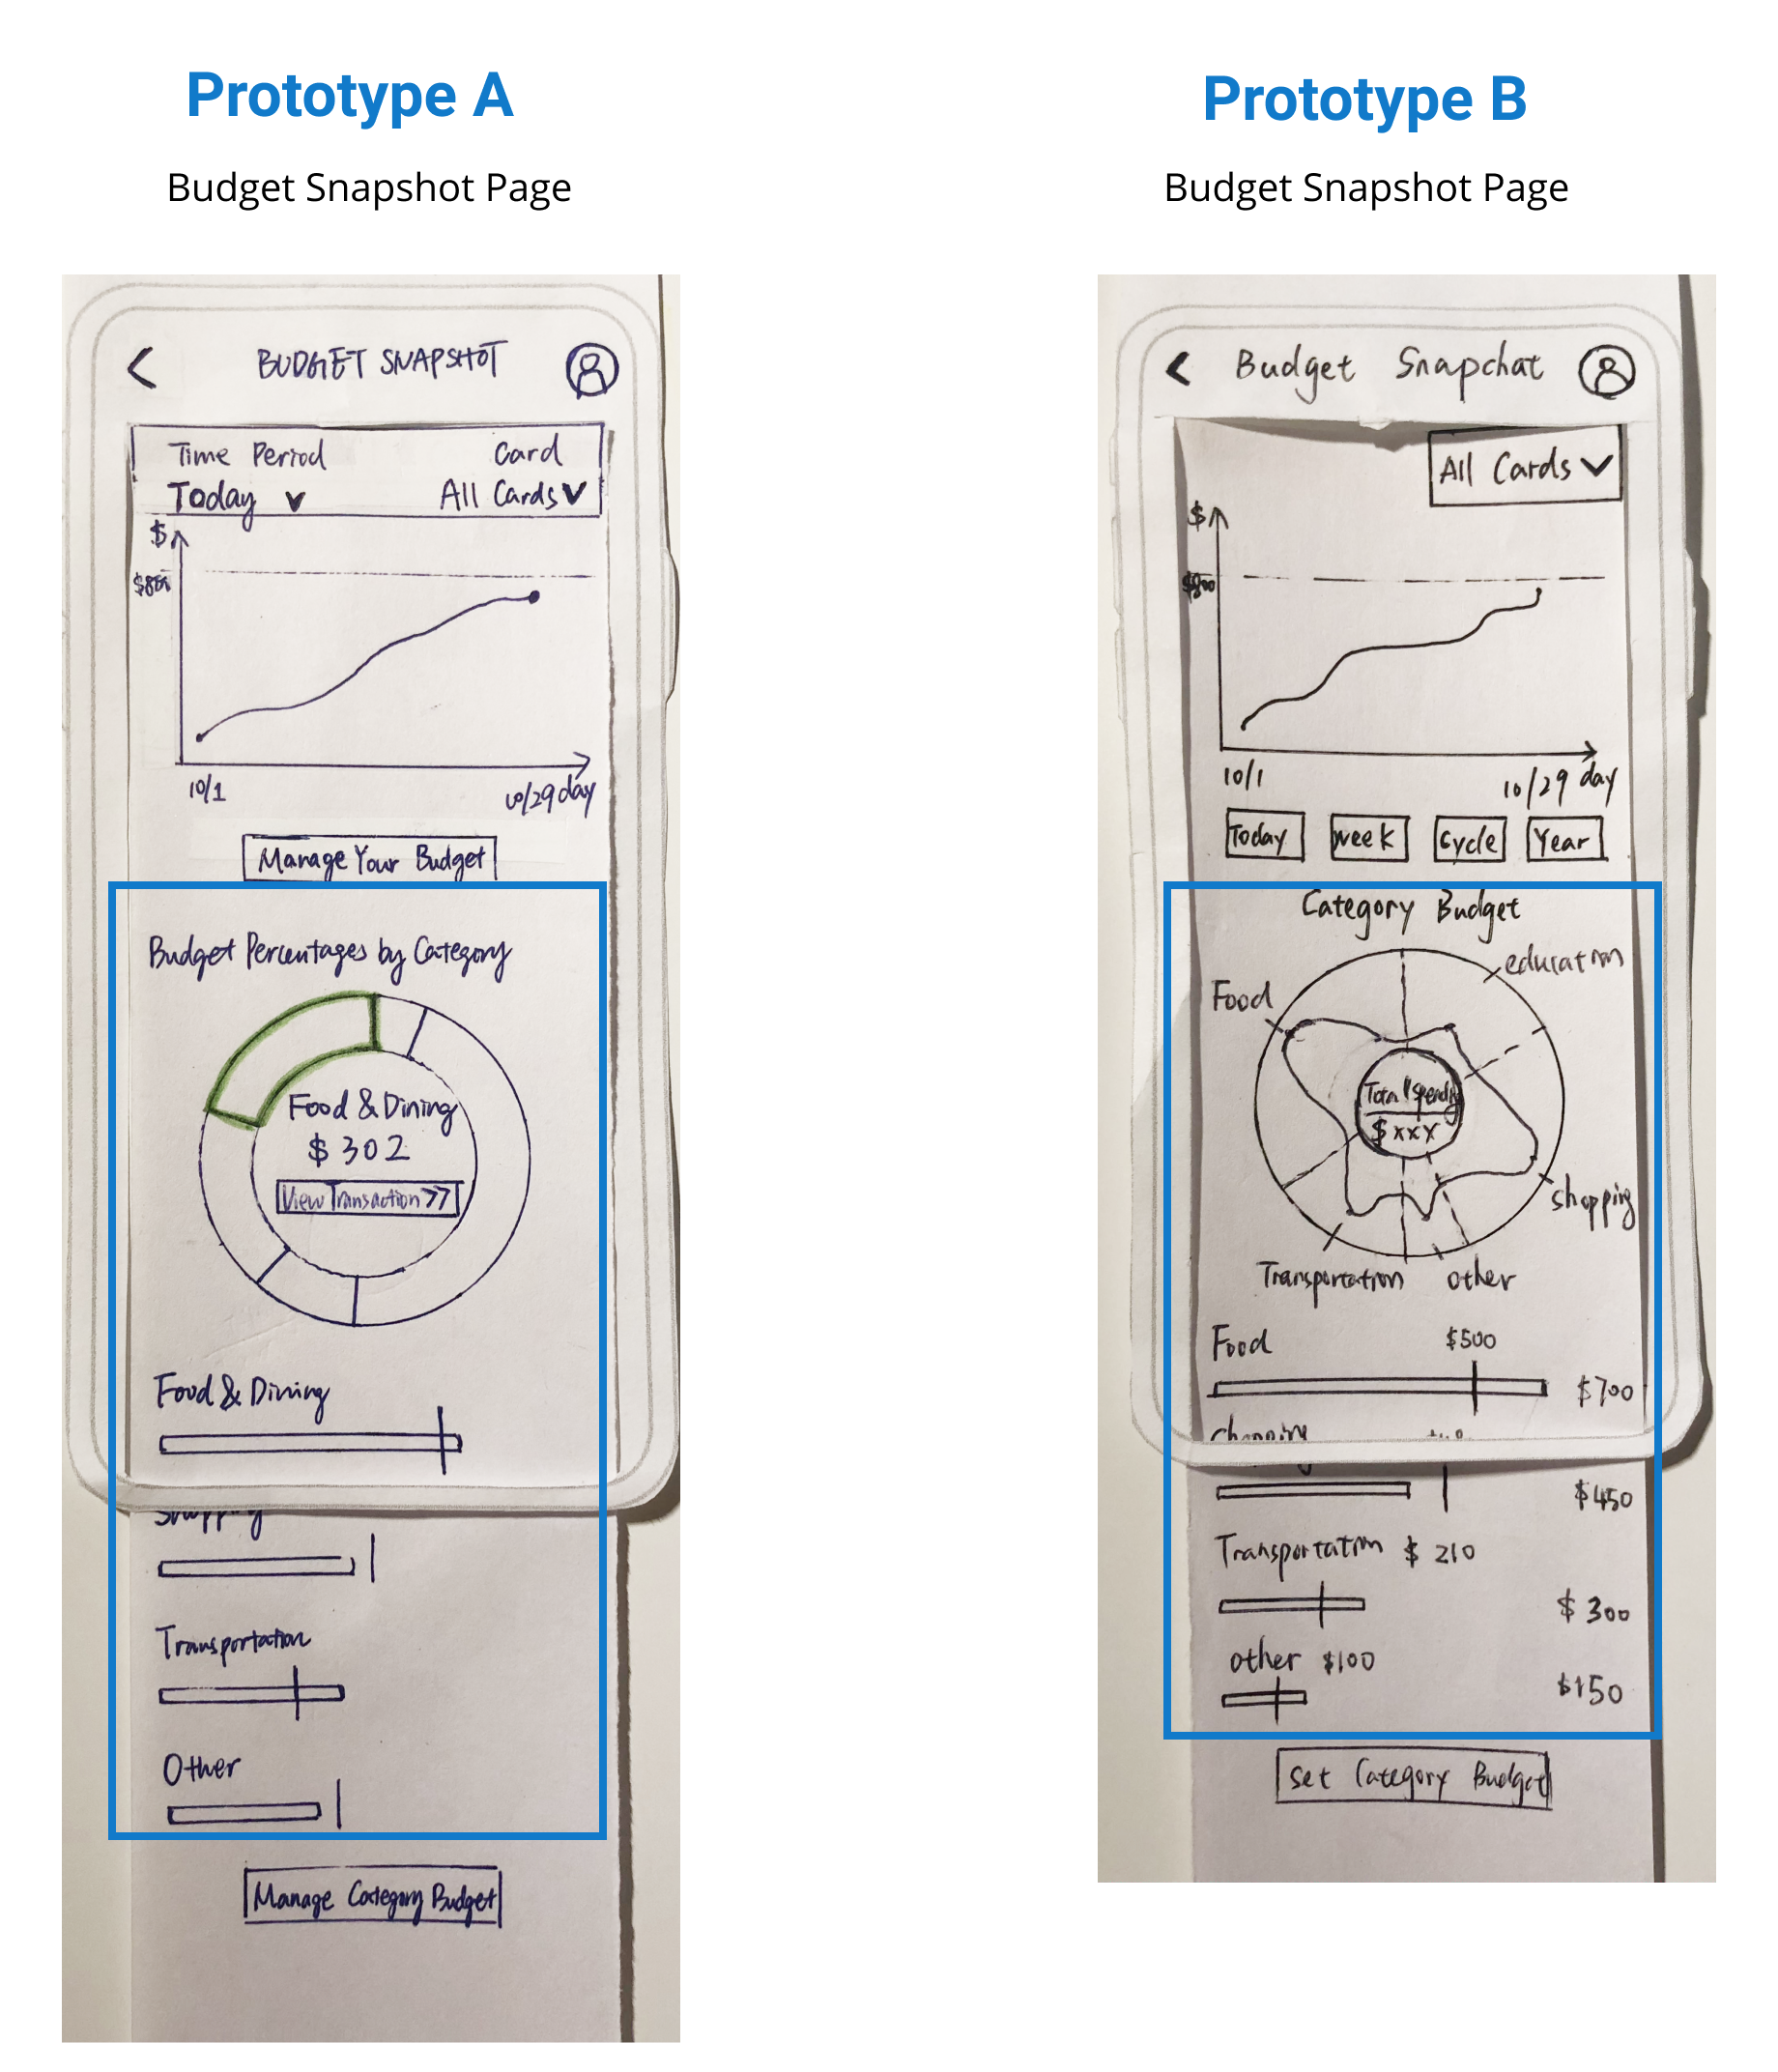 Prototype A
Budget Snapshot Page
BUDGET SNAPSHOT
Time Period Card
Today All Cards
$
10/1 10/29 day
Manage Your Budget
Budget Percentages by Category
Food & Dining
$ 302
View Transaction >>
Food & Dining
Shopping
Transportation
Other
Manage Category Budget
Prototype B
Budget Snapshot Page
Budget Snapchat
All Cards
$
$800
10/1 10/29 day
Today week Cycle Year
Category Budget
education
Food
Total Spending
$ xxx
shopping
Transportation other
Food $500
$700
$450
Transportation $ 210
$ 300
other $100
$150
Set Category Budget